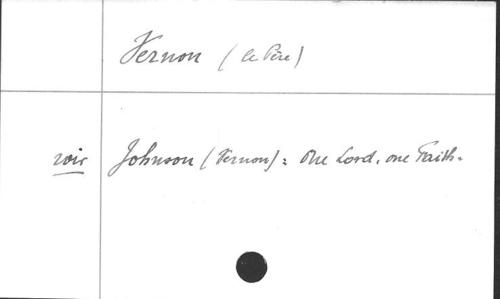 Vernon (le Père)
voir Johnson (Vernon) : One Lord, one Faith.